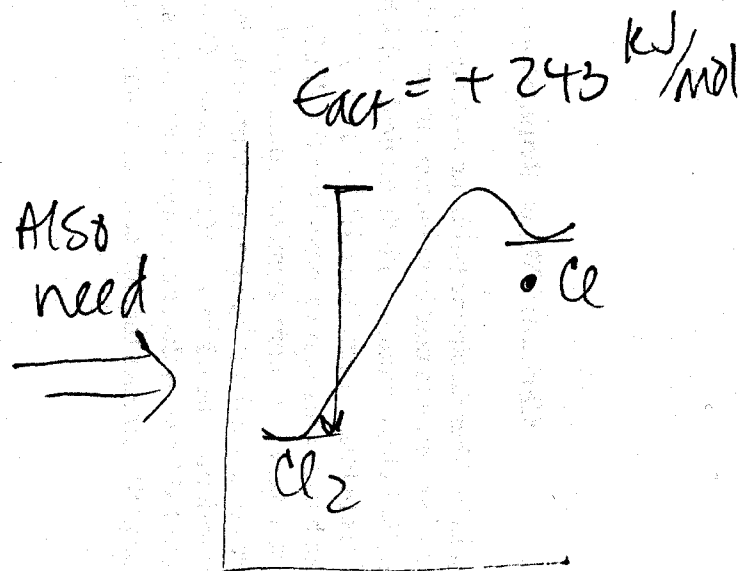 Eact = + 243 kJ/mol
Also
need
• Cl
Cl2